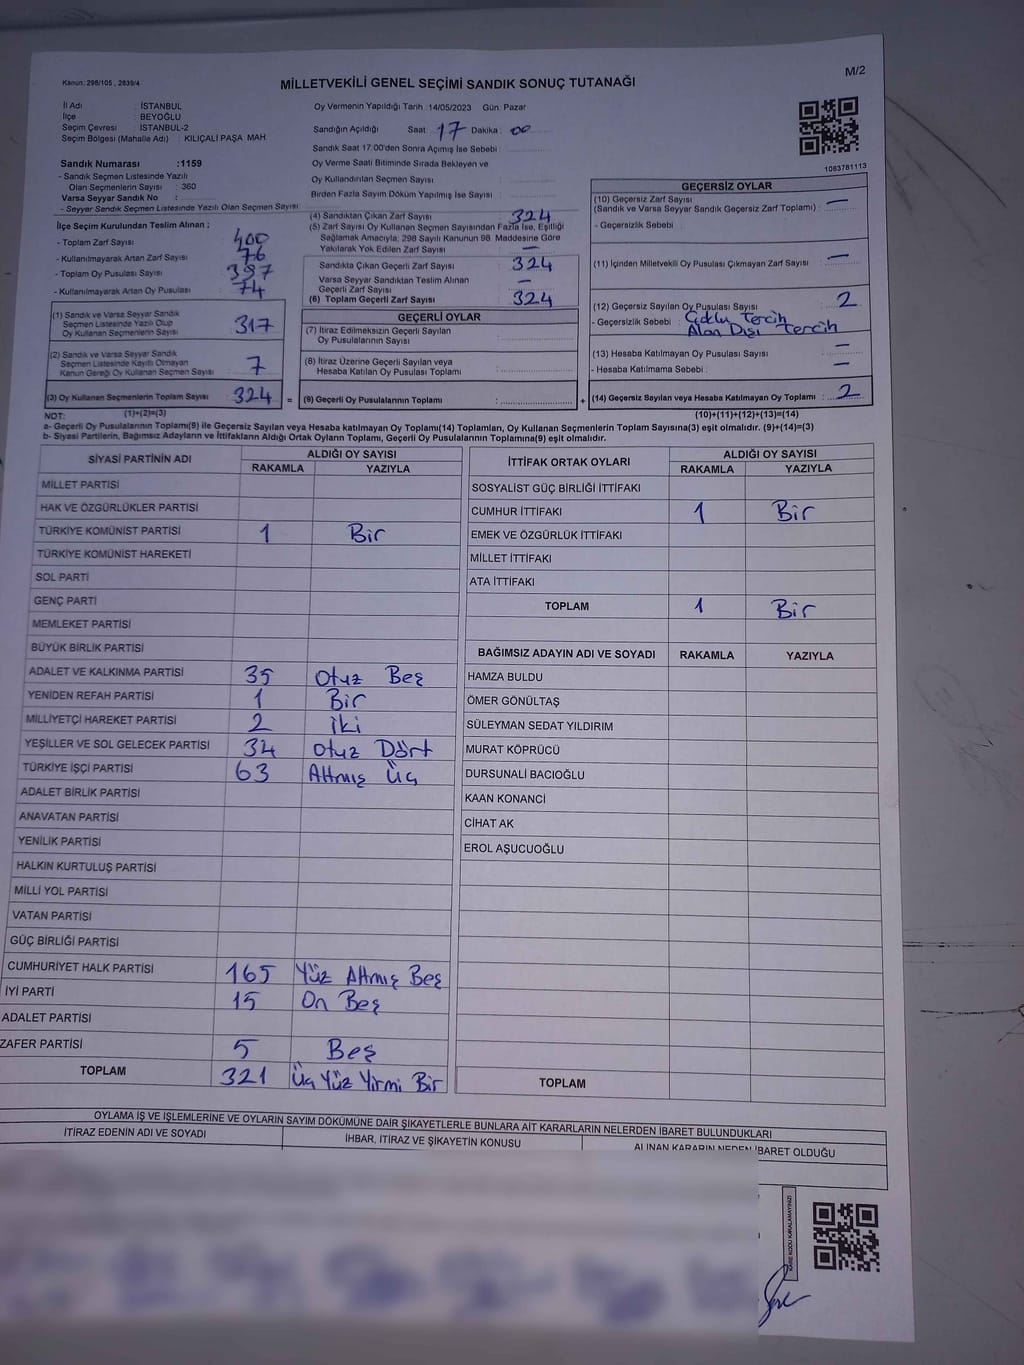 Kanun: 298/105 , 2839/4
MİLLETVEKİLİ GENEL SEÇİMİ SANDIK SONUÇ TUTANAĞI
M/2
İl Adı : İSTANBUL
İlçe : BEYOĞLU
Seçim Çevresi : İSTANBUL-2
Seçim Bölgesi (Mahalle Adı) : KILIÇALİ PAŞA MAH.
Sandık Numarası :1159
- Sandık Seçmen Listesinde Yazılı
Olan Seçmenlerin Sayısı : 360
Varsa Seyyar Sandık No :
- Seyyar Sandık Seçmen Listesinde Yazılı Olan Seçmen Sayısı :
İlçe Seçim Kurulundan Teslim Alınan :
- Toplam Zarf Sayısı 400
- Kullanılmayarak Artan Zarf Sayısı 76
- Toplam Oy Pusulası Sayısı 397
- Kullanılmayarak Artan Oy Pusulası 74
(1) Sandık ve Varsa Seyyar Sandık
Seçmen Listesinde Yazılı Olup
Oy Kullanan Seçmenlerin Sayısı 317
(2) Sandık ve Varsa Seyyar Sandık
Seçmen Listesinde Kayıtlı Olmayan
Kanun Gereği Oy Kullanan Seçmen Sayısı 7
(3) Oy Kullanan Seçmenlerin Toplam Sayısı 324 =
(1)+(2)=(3)
Oy Vermenin Yapıldığı Tarih : 14/05/2023 Gün: Pazar
Sandığın Açıldığı Saat : 17 Dakika : 00
Sandık Saat 17:00'den Sonra Açılmış İse Sebebi :
Oy Verme Saati Bitiminde Sırada Bekleyen ve
Oy Kullandırılan Seçmen Sayısı :
Birden Fazla Sayım Döküm Yapılmış İse Sayısı :
(4) Sandıktan Çıkan Zarf Sayısı 324
(5) Zarf Sayısı Oy Kullanan Seçmen Sayısından Fazla İse, Eşitliği
Sağlamak Amacıyla; 298 Sayılı Kanunun 98. Maddesine Göre
Yakılarak Yok Edilen Zarf Sayısı —
Sandıkta Çıkan Geçerli Zarf Sayısı 324
Varsa Seyyar Sandıktan Teslim Alınan
Geçerli Zarf Sayısı —
(6) Toplam Geçerli Zarf Sayısı 324
GEÇERLİ OYLAR
(7) İtiraz Edilmeksizin Geçerli Sayılan
Oy Pusulalarının Sayısı :
(8) İtiraz Üzerine Geçerli Sayılan veya
Hesaba Katılan Oy Pusulası Toplamı :
(9) Geçerli Oy Pusulalarının Toplamı : +
1083781113
GEÇERSİZ OYLAR
(10) Geçersiz Zarf Sayısı
(Sandık ve Varsa Seyyar Sandık Geçersiz Zarf Toplamı) : —
- Geçersizlik Sebebi :
(11) İçinden Milletvekili Oy Pusulası Çıkmayan Zarf Sayısı : —
(12) Geçersiz Sayılan Oy Pusulası Sayısı 2
- Geçersizlik Sebebi : Çoklu Tercih
Alan Dışı Tercih
(13) Hesaba Katılmayan Oy Pusulası Sayısı : —
- Hesaba Katılmama Sebebi : —
(14) Geçersiz Sayılan veya Hesaba Katılmayan Oy Toplamı : 2
(10)+(11)+(12)+(13)=(14)
NOT:
a- Geçerli Oy Pusulalarının Toplamı(9) ile Geçersiz Sayılan veya Hesaba katılmayan Oy Toplamı(14) Toplamları, Oy Kullanan Seçmenlerin Toplam Sayısına(3) eşit olmalıdır. (9)+(14)=(3)
b- Siyasi Partilerin, Bağımsız Adayların ve İttifakların Aldığı Ortak Oyların Toplamı, Geçerli Oy Pusulalarının Toplamına(9) eşit olmalıdır.
SİYASİ PARTİNİN ADI ALDIĞI OY SAYISI
RAKAMLA YAZIYLA
MİLLET PARTİSİ
HAK VE ÖZGÜRLÜKLER PARTİSİ
TÜRKİYE KOMÜNİST PARTİSİ 1 Bir
TÜRKİYE KOMÜNİST HAREKETİ
SOL PARTİ
GENÇ PARTİ
MEMLEKET PARTİSİ
BÜYÜK BİRLİK PARTİSİ
ADALET VE KALKINMA PARTİSİ 35 Otuz Beş
YENİDEN REFAH PARTİSİ 1 Bir
MİLLİYETÇİ HAREKET PARTİSİ 2 iki
YEŞİLLER VE SOL GELECEK PARTİSİ 34 Otuz Dört
TÜRKİYE İŞÇİ PARTİSİ 63 Altmış Üç
ADALET BİRLİK PARTİSİ
ANAVATAN PARTİSİ
YENİLİK PARTİSİ
HALKIN KURTULUŞ PARTİSİ
MİLLİ YOL PARTİSİ
VATAN PARTİSİ
GÜÇ BİRLİĞİ PARTİSİ
CUMHURİYET HALK PARTİSİ 165 Yüz Altmış Beş
İYİ PARTİ 15 On Beş
ADALET PARTİSİ
ZAFER PARTİSİ 5 Beş
TOPLAM 321 Üç Yüz Yirmi Bir
İTTİFAK ORTAK OYLARI ALDIĞI OY SAYISI
RAKAMLA YAZIYLA
SOSYALİST GÜÇ BİRLİĞİ İTTİFAKI
CUMHUR İTTİFAKI 1 Bir
EMEK VE ÖZGÜRLÜK İTTİFAKI
MİLLET İTTİFAKI
ATA İTTİFAKI
TOPLAM 1 Bir
BAĞIMSIZ ADAYIN ADI VE SOYADI RAKAMLA YAZIYLA
HAMZA BULDU
ÖMER GÖNÜLTAŞ
SÜLEYMAN SEDAT YILDIRIM
MURAT KÖPRÜCÜ
DURSUNALİ BACIOĞLU
KAAN KONANCİ
CİHAT AK
EROL AŞUCUOĞLU
TOPLAM
OYLAMA İŞ VE İŞLEMLERİNE VE OYLARIN SAYIM DÖKÜMÜNE DAİR ŞİKAYETLERLE BUNLARA AİT KARARLARIN NELERDEN İBARET BULUNDUKLARI
İTİRAZ EDENİN ADI VE SOYADI İHBAR, İTİRAZ VE ŞİKAYETİN KONUSU ALINAN KARARIN NEDEN İBARET OLDUĞU
KARE KODU KARALAMAYINIZ!